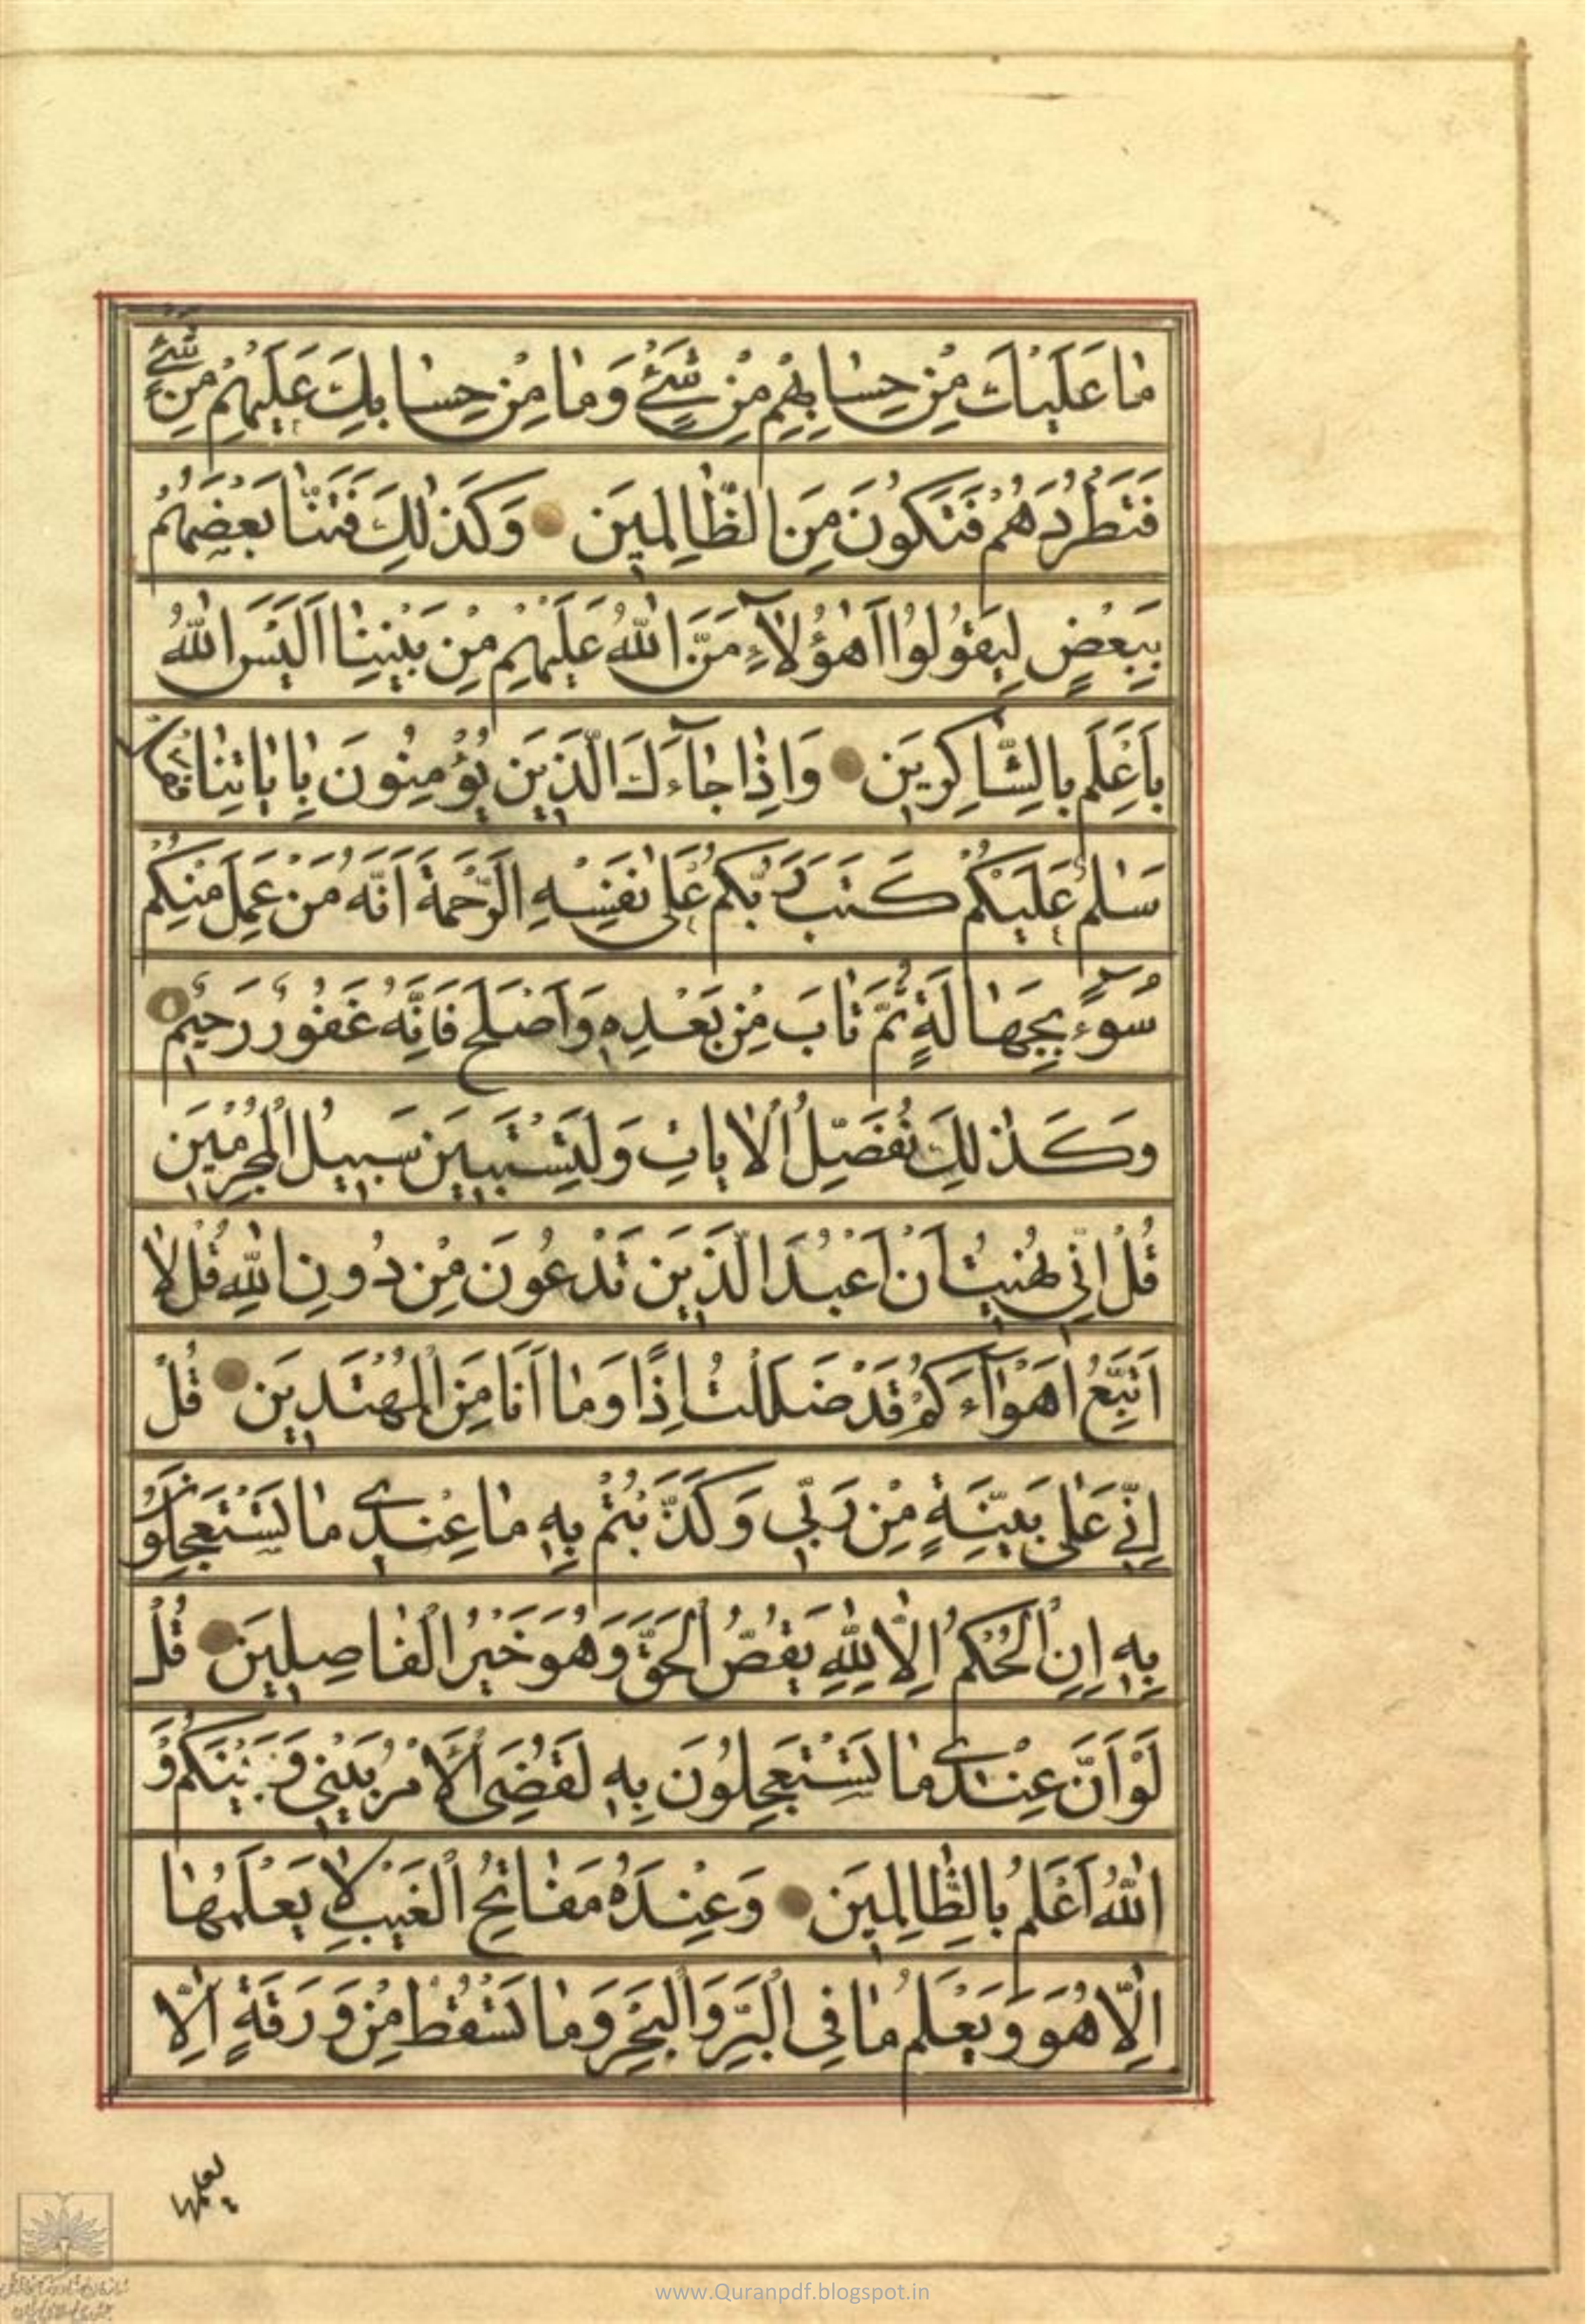 مٰا عَلَيْكَ مِنْ حِسٰابِهِمْ مِنْ شَيْءٍ وَمٰا مِنْ حِسٰابِكَ عَلَيْهِمْ مِنْ شَيْءٍ
فَتَطْرُدَهُمْ فَتَكُونَ مِنَ الظّٰالِمِينَ وَكَذٰلِكَ فَتَنّٰا بَعْضَهُمْ
بِبَعْضٍ لِيَقُولُوا اَهٰؤُلٰآءِ مَنَّ اللّٰهُ عَلَيْهِمْ مِنْ بَيْنِنٰا اَلَيْسَ اللّٰهُ
بِاَعْلَمَ بِالشّٰاكِرِينَ وَاِذٰا جٰآءَكَ الَّذِينَ يُؤْمِنُونَ بِاٰيٰاتِنٰا فَقُلْ
سَلٰمٌ عَلَيْكُمْ كَتَبَ رَبُّكُمْ عَلٰى نَفْسِهِ الرَّحْمَةَ اَنَّهُ مَنْ عَمِلَ مِنْكُمْ
سُوٓءً بِجَهٰالَةٍ ثُمَّ تٰابَ مِنْ بَعْدِهِ وَاَصْلَحَ فَاِنَّهُ غَفُورٌ رَحِيمٌ
وَكَذٰلِكَ نُفَصِّلُ الْاٰيٰاتِ وَلِتَسْتَبِينَ سَبِيلُ الْمُجْرِمِينَ
قُلْ اِنِّي نُهِيتُ اَنْ اَعْبُدَ الَّذِينَ تَدْعُونَ مِنْ دُونِ اللّٰهِ قُلْ لٰا
اَتَّبِعُ اَهْوٰآءَكُمْ قَدْ ضَلَلْتُ اِذًا وَمٰا اَنَا مِنَ الْمُهْتَدِينَ قُلْ
اِنِّي عَلٰى بَيِّنَةٍ مِنْ رَبِّي وَكَذَّبْتُمْ بِهِ مٰا عِنْدِي مٰا تَسْتَعْجِلُونَ
بِهِ اِنِ الْحُكْمُ اِلّٰا لِلّٰهِ يَقُصُّ الْحَقَّ وَهُوَ خَيْرُ الْفٰاصِلِينَ قُلْ
لَوْ اَنَّ عِنْدِي مٰا تَسْتَعْجِلُونَ بِهِ لَقُضِيَ الْاَمْرُ بَيْنِي وَبَيْنَكُمْ وَ
اللّٰهُ اَعْلَمُ بِالظّٰالِمِينَ وَعِنْدَهُ مَفٰاتِحُ الْغَيْبِ لٰا يَعْلَمُهٰا
اِلّٰا هُوَ وَيَعْلَمُ مٰا فِي الْبَرِّ وَالْبَحْرِ وَمٰا تَسْقُطُ مِنْ وَرَقَةٍ اِلّٰا
يعلمها
www.Quranpdf.blogspot.in